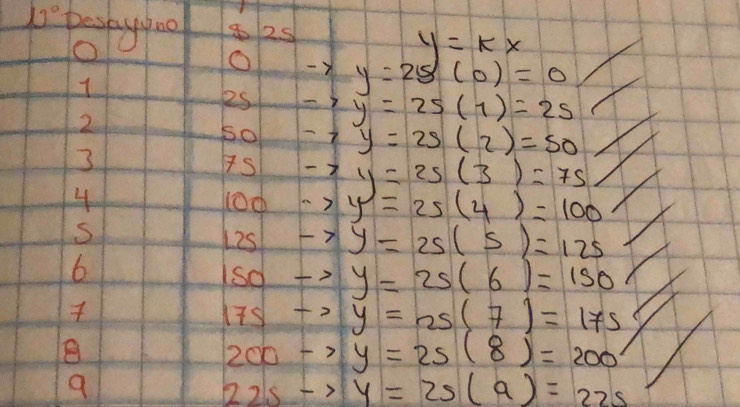 N° Desayuno $ 25
y = Kx
0 0 -> y = 25 (0) = 0
1 25 -> y = 25 (1) = 25
2 50 -> y = 25 (2) = 50
3 75 -> y = 25 (3) = 75
4 100 -> y = 25 (4) = 100
5 125 -> y = 25 (5) = 125
6 150 -> y = 25 (6) = 150
7 175 -> y = 25 (7) = 175
8 200 -> y = 25 (8) = 200
9 225 -> y = 25 (9) = 225